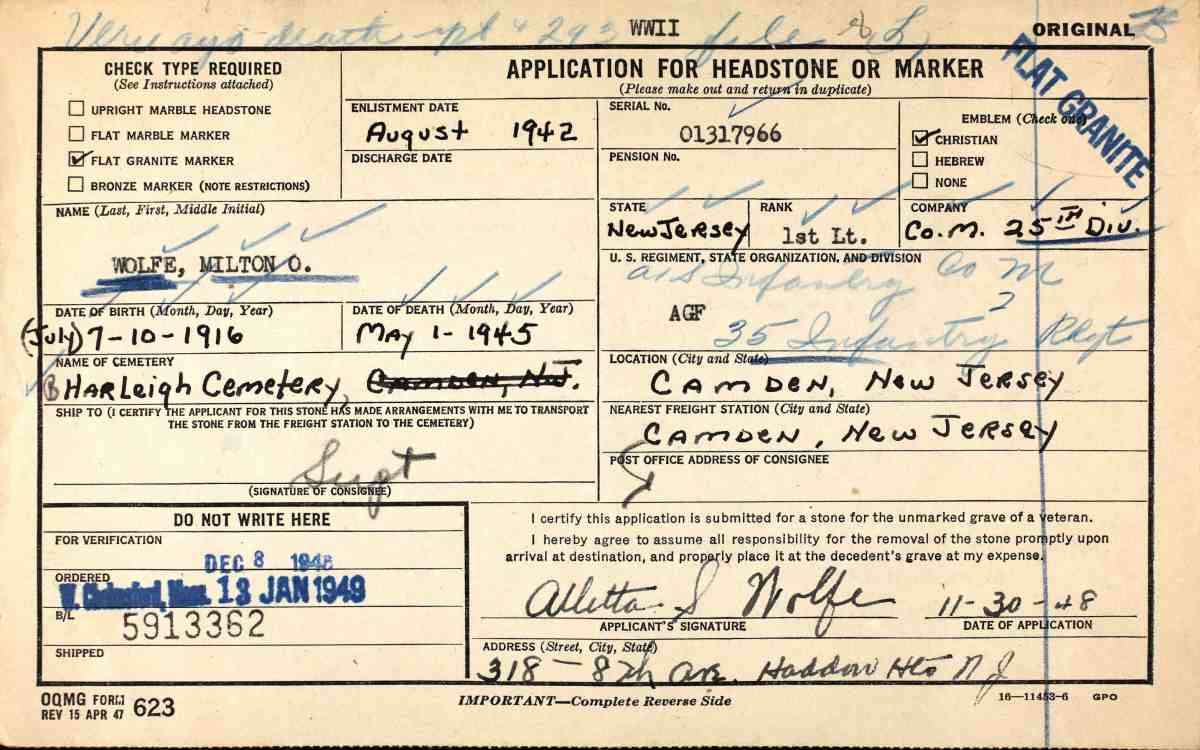 Very ago death rpt # 293 WWII file
ORIGINAL
FLAT GRANITE
CHECK TYPE REQUIRED
(See Instructions attached)
UPRIGHT MARBLE HEADSTONE
FLAT MARBLE MARKER
FLAT GRANITE MARKER
BRONZE MARKER (NOTE RESTRICTIONS)
APPLICATION FOR HEADSTONE OR MARKER
(Please make out and return in duplicate)
ENLISTMENT DATE
August 1942
DISCHARGE DATE
SERIAL No.
01317966
PENSION No.
EMBLEM (Check one)
CHRISTIAN
HEBREW
NONE
NAME (Last, First, Middle Initial)
WOLFE, MILTON O.
STATE
New Jersey
RANK
1st Lt.
COMPANY
Co. M. 25TH Div.
U. S. REGIMENT, STATE ORGANIZATION, AND DIVISION
Infantry Co M
AGF
35 Infantry Regt
DATE OF BIRTH (Month, Day, Year)
(July) 7-10-1916
DATE OF DEATH (Month, Day, Year)
May 1-1945
NAME OF CEMETERY
Harleigh Cemetery, Camden, N.J.
LOCATION (City and State)
Camden, New Jersey
SHIP TO (I CERTIFY THE APPLICANT FOR THIS STONE HAS MADE ARRANGEMENTS WITH ME TO TRANSPORT
THE STONE FROM THE FREIGHT STATION TO THE CEMETERY)
Supt
(SIGNATURE OF CONSIGNEE)
NEAREST FREIGHT STATION (City and State)
Camden, New Jersey
POST OFFICE ADDRESS OF CONSIGNEE
DO NOT WRITE HERE
FOR VERIFICATION
DEC 8 1948
ORDERED
W. Chelmsford, Mass. 13 JAN 1949
B/L
5913362
SHIPPED
I certify this application is submitted for a stone for the unmarked grave of a veteran.
I hereby agree to assume all responsibility for the removal of the stone promptly upon
arrival at destination, and properly place it at the decedent's grave at my expense.
Alletta S Wolfe 11-30-48
APPLICANT'S SIGNATURE
DATE OF APPLICATION
ADDRESS (Street, City, State)
318 - 8th Ave. Haddon Hts N J
OQMG FORM
REV 15 APR 47 623
IMPORTANT—Complete Reverse Side
16—11453-6 GPO